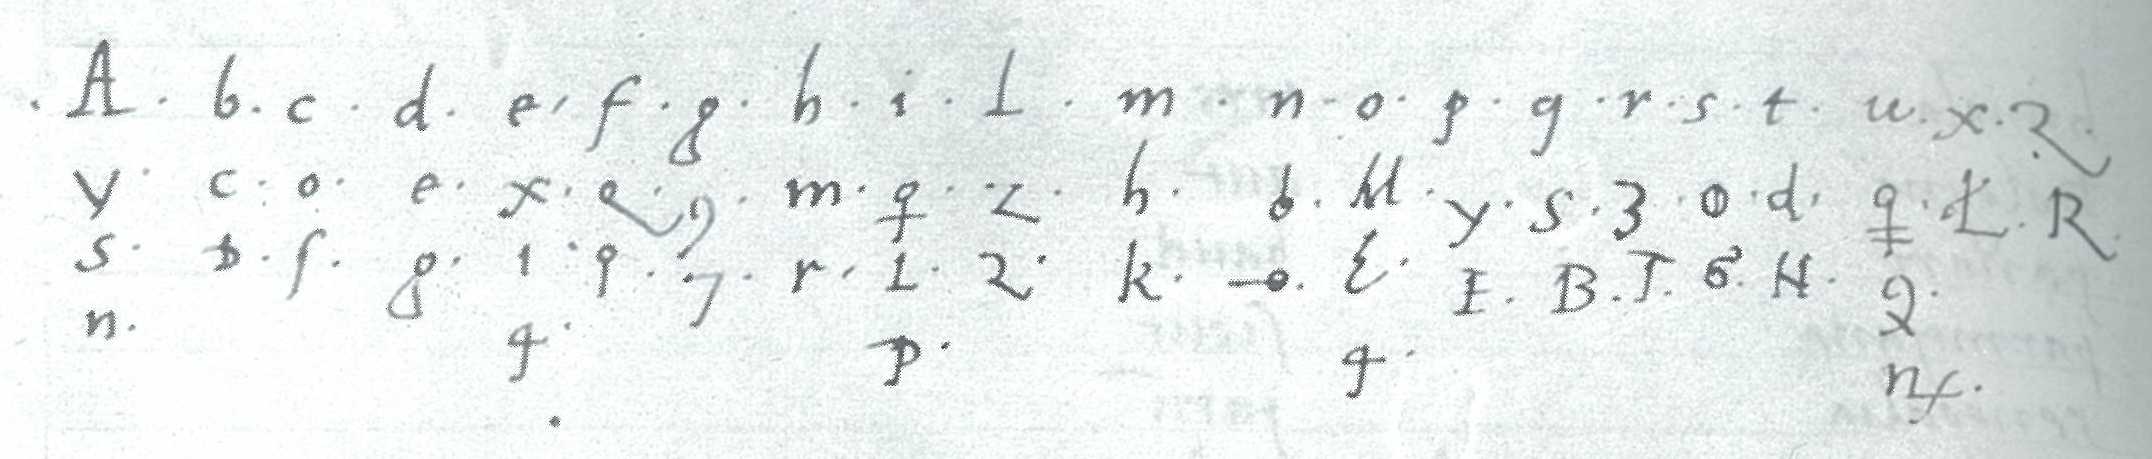 . A . b . c . d . e . f . g . h . i . L . m . n . o . p . q . r . s . t . u . x . 2 .
y . c . o . e . x . e . 9 . m . q . z . h . b . M . y . s . 3 . o . d . q . L . R .
s . b . f . g . 1 . 9 . 7 . r . L . 2 . k . o . E . I . B . T . 6 . H . 2 .
n . q . p . q . n